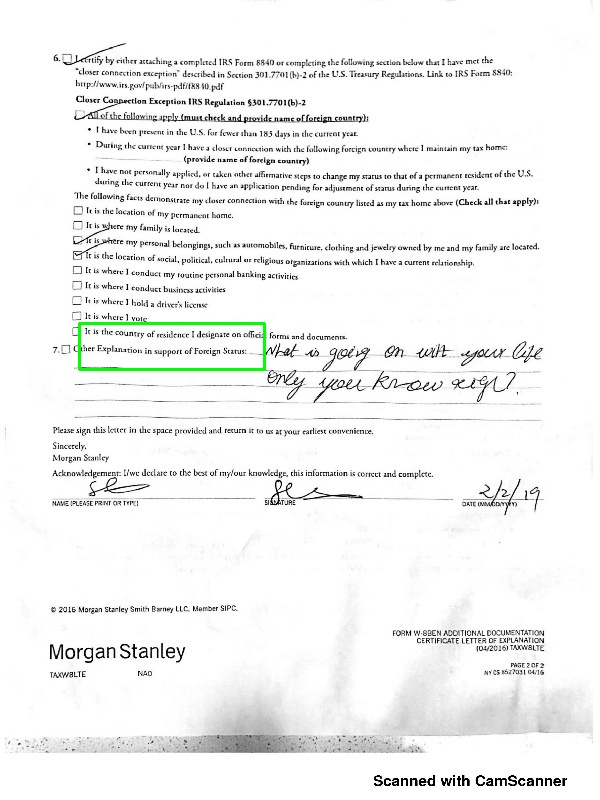 6. I certify by either attaching a completed IRS Form 8840 or completing the following section below that I have met the
"closer connection exception" described in Section 301.7701(b)-2 of the U.S. Treasury Regulations. Link to IRS Form 8840:
http://www.irs.gov/pub/irs-pdf/f8840.pdf
Closer Connection Exception IRS Regulation §301.7701(b)-2
All of the following apply (must check and provide name of foreign country):
• I have been present in the U.S. for fewer than 183 days in the current year.
• During the current year I have a closer connection with the following foreign country where I maintain my tax home:
(provide name of foreign country)
• I have not personally applied, or taken other affirmative steps to change my status to that of a permanent resident of the U.S.
during the current year nor do I have an application pending for adjustment of status during the current year.
The following facts demonstrate my closer connection with the foreign country listed as my tax home above (Check all that apply):
It is the location of my permanent home.
It is where my family is located.
It is where my personal belongings, such as automobiles, furniture, clothing and jewelry owned by me and my family are located.
It is the location of social, political, cultural or religious organizations with which I have a current relationship.
It is where I conduct my routine personal banking activities
It is where I conduct business activities
It is where I hold a driver's license
It is where I vote
It is the country of residence I designate on official forms and documents.
7. Other Explanation in support of Foreign Status: What is going on with your life
only you know
Please sign this letter in the space provided and return it to us at your earliest convenience.
Sincerely,
Morgan Stanley
Acknowledgement: I/we declare to the best of my/our knowledge, this information is correct and complete.
2/2/19
NAME (PLEASE PRINT OR TYPE) SIGNATURE DATE (MM/DD/YYYY)
© 2016 Morgan Stanley Smith Barney LLC. Member SIPC.
FORM W-8BEN ADDITIONAL DOCUMENTATION
CERTIFICATE LETTER OF EXPLANATION
(04/2016) TAXW8LTE
Morgan Stanley
TAXW8LTE NAO
PAGE 2 OF 2
NY CS 8527031 04/16
Scanned with CamScanner